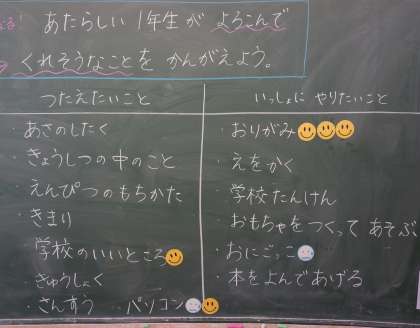 る!
あたらしい 1年生が よろこんで
くれそうなことを かんがえよう。
つたえたいこと
・あさのしたく
・きょうしつの中のこと
・えんぴつのもちかた
・きまり
・学校のいいところ
・きゅうしょく
・さんすう パソコン
いっしょに やりたいこと
・おりがみ
・えをかく
・学校たんけん
・おもちゃをつくって あそぶ
・おにごっこ
・本をよんであげる